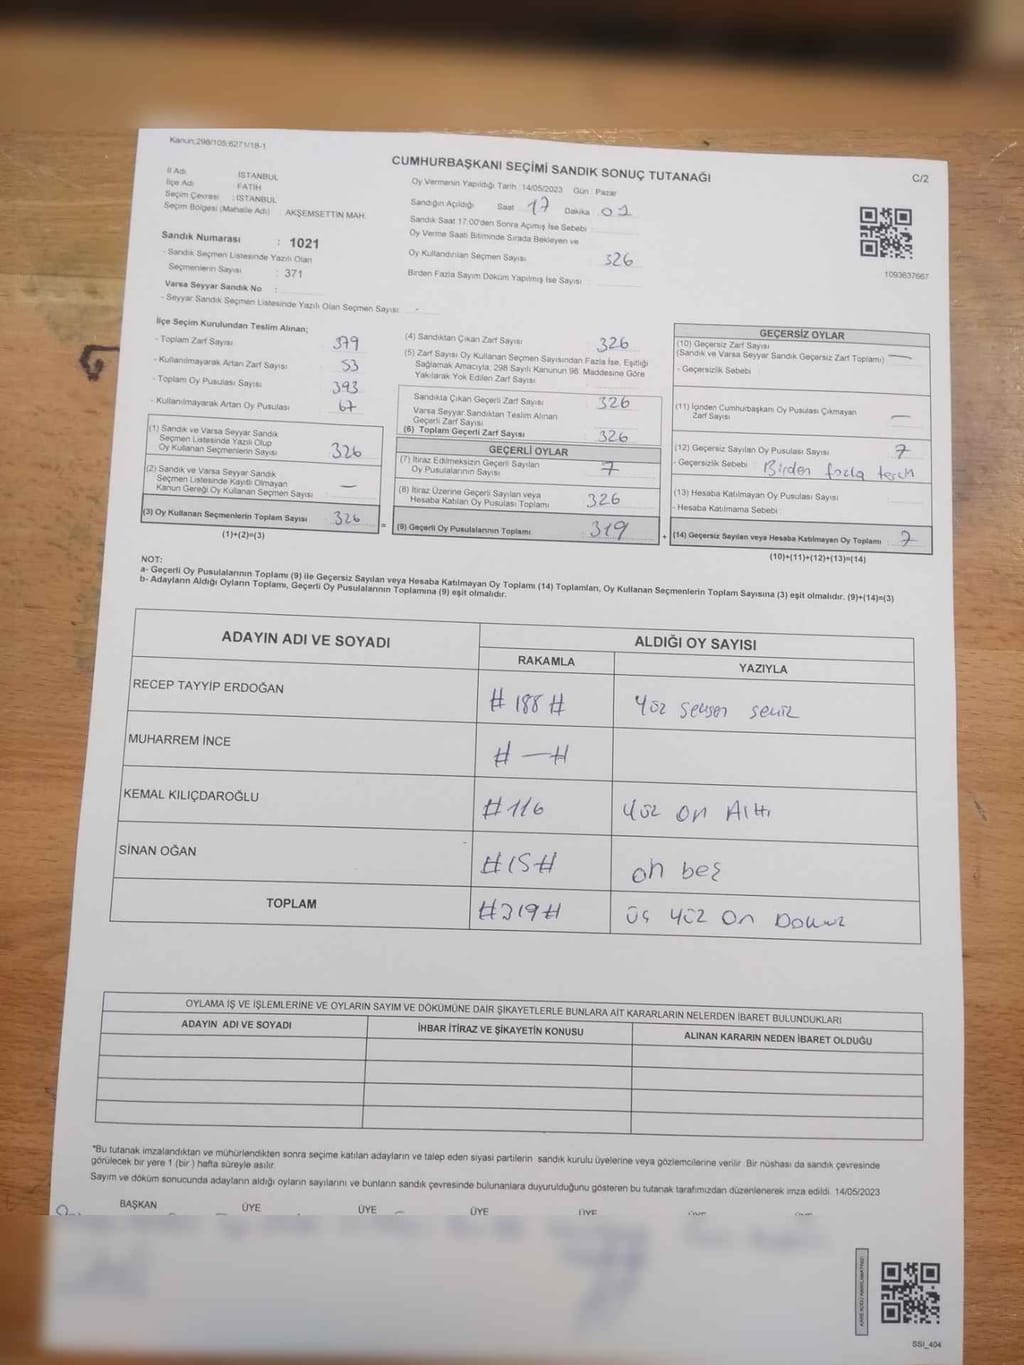 Kanun:298/105;6271/18-1
CUMHURBAŞKANI SEÇİMİ SANDIK SONUÇ TUTANAĞI
C/2
İl Adı : İSTANBUL
İlçe Adı : FATİH
Seçim Çevresi : İSTANBUL
Seçim Bölgesi (Mahalle Adı) : AKŞEMSETTİN MAH.
Sandık Numarası : 1021
- Sandık Seçmen Listesinde Yazılı Olan
Seçmenlerin Sayısı : 371
Varsa Seyyar Sandık No :
- Seyyar Sandık Seçmen Listesinde Yazılı Olan Seçmen Sayısı: -
Oy Vermenin Yapıldığı Tarih :14/05/2023 Gün : Pazar
Sandığın Açıldığı Saat 17 Dakika 01
Sandık Saat 17:00'den Sonra Açımış İse Sebebi :
Oy Verme Saati Bitiminde Sırada Bekleyen ve
Oy Kullandırılan Seçmen Sayısı 326
Birden Fazla Sayım Döküm Yapılmış İse Sayısı
1093637667
İlçe Seçim Kurulundan Teslim Alınan;
- Toplam Zarf Sayısı 379
- Kullanılmayarak Artan Zarf Sayısı 53
- Toplam Oy Pusulası Sayısı 393
- Kullanılmayarak Artan Oy Pusulası 67
(1) Sandık ve Varsa Seyyar Sandık
Seçmen Listesinde Yazılı Olup
Oy Kullanan Seçmenlerin Sayısı 326
(2) Sandık ve Varsa Seyyar Sandık
Seçmen Listesinde Kayıtlı Olmayan
Kanun Gereği Oy Kullanan Seçmen Sayısı —
(3) Oy Kullanan Seçmenlerin Toplam Sayısı 326
(1)+(2)=(3)
(4) Sandıktan Çıkan Zarf Sayısı 326
(5) Zarf Sayısı Oy Kullanan Seçmen Sayısından Fazla İse, Eşitliği
Sağlamak Amacıyla, 298 Sayılı Kanunun 98. Maddesine Göre
Yakılarak Yok Edilen Zarf Sayısı
Sandıkta Çıkan Geçerli Zarf Sayısı 326
Varsa Seyyar Sandıktan Teslim Alınan
Geçerli Zarf Sayısı
(6) Toplam Geçerli Zarf Sayısı 326
GEÇERLİ OYLAR
(7) İtiraz Edilmeksizin Geçerli Sayılan
Oy Pusulalarının Sayısı 7
(8) İtiraz Üzerine Geçerli Sayılan veya
Hesaba Katılan Oy Pusulası Toplamı 326
= (9) Geçerli Oy Pusulalarının Toplamı 319 +
GEÇERSİZ OYLAR
(10) Geçersiz Zarf Sayısı
(Sandık ve Varsa Seyyar Sandık Geçersiz Zarf Toplamı) —
- Geçersizlik Sebebi :
(11) İçinden Cumhurbaşkanı Oy Pusulası Çıkmayan
Zarf Sayısı —
(12) Geçersiz Sayılan Oy Pusulası Sayısı 7
- Geçersizlik Sebebi : Birden fazla tercih
(13) Hesaba Katılmayan Oy Pusulası Sayısı
- Hesaba Katılmama Sebebi :
(14) Geçersiz Sayılan veya Hesaba Katılmayan Oy Toplamı 7
(10)+(11)+(12)+(13)=(14)
NOT:
a- Geçerli Oy Pusulalarının Toplamı (9) ile Geçersiz Sayılan veya Hesaba Katılmayan Oy Toplamı (14) Toplamları, Oy Kullanan Seçmenlerin Toplam Sayısına (3) eşit olmalıdır. (9)+(14)=(3)
b- Adayların Aldığı Oyların Toplamı, Geçerli Oy Pusulalarının Toplamına (9) eşit olmalıdır.
ADAYIN ADI VE SOYADI
ALDIĞI OY SAYISI
RAKAMLA YAZIYLA
RECEP TAYYİP ERDOĞAN #188# yüz seksen sekiz
MUHARREM İNCE #—#
KEMAL KILIÇDAROĞLU #116 yüz on Altı
SİNAN OĞAN #15# on beş
TOPLAM #319# üç yüz on Dokuz
OYLAMA İŞ VE İŞLEMLERİNE VE OYLARIN SAYIM VE DÖKÜMÜNE DAİR ŞİKAYETLERLE BUNLARA AİT KARARLARIN NELERDEN İBARET BULUNDUKLARI
ADAYIN ADI VE SOYADI İHBAR İTİRAZ VE ŞİKAYETİN KONUSU ALINAN KARARIN NEDEN İBARET OLDUĞU
*Bu tutanak imzalandıktan ve mühürlendikten sonra seçime katılan adayların ve talep eden siyasi partilerin sandık kurulu üyelerine veya gözlemcilerine verilir. Bir nüshası da sandık çevresinde
görülecek bir yere 1 (bir ) hafta süreyle asılır.
Sayım ve döküm sonucunda adayların aldığı oyların sayılarını ve bunların sandık çevresinde bulunanlara duyurulduğunu gösteren bu tutanak tarafımızdan düzenlenerek imza edildi. 14/05/2023
BAŞKAN ÜYE ÜYE ÜYE ÜYE
SSİ_404